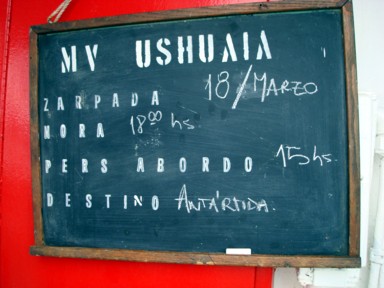 MV USHUAIA
ZARPADA 18/MARZO
HORA 18⁰⁰ hs.
PERS ABORDO 15hs.
DESTINO ANTÁRTIDA.